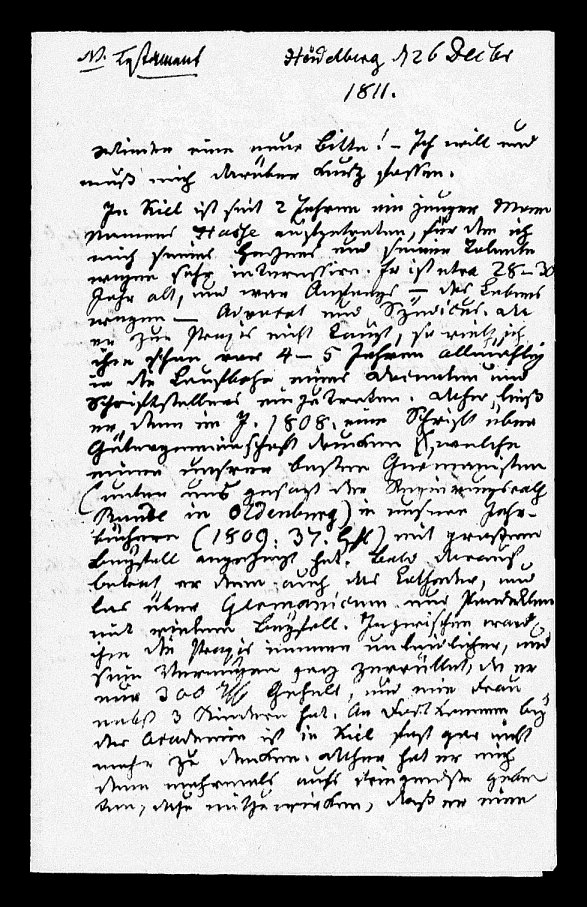 N. Testament
Heidelberg d 26 Decbr
1811.
Wieder eine neue Bitte! – Ich will und
muß mich darüber kurz fassen.
In Kiel ist seit 2 Jahren ein junger Mann
Namens Hasse aufgetreten, für den ich
mich seines Herzens und seiner Talente
wegen sehr interessire. Er ist etwa 28–30
Jahr alt, und war Anfangs – des Lebens
wegen – Advocat und Syndicus. Da
er zur Praxis nicht taugt, so rieth ich
ihm schon vor 4–5 Jahren allmählig
in die Laufbahn eines Docenten und
Schriftstellers einzutreten. Daher ließ
er, denn im J. 1808. eine Schrift über
Gütergemeinschaft drucken, welche
einer unserer besten Germanisten
(unter uns gesagt der Regierungsrath
Runde in Oldenburg) in unsern Jahr-
büchern (1809. 37. Hft) mit großem
Beyfall angezeigt hat. Bald darauf
betrat er denn auch das Catheder, und
las über Germanicum und Pandekten
mit vielem Beyfall. Inzwischen ward
ihm die Praxis immer unleidlicher, und
sein Vermögen ganz zerrüttet, da er
nur 300 Gehalt, und eine Frau
nebst 3 Kindern hat. An Fortkommen bey
der Academie ist in Kiel fast gar nicht
mehr zu denken. Daher hat er mich
denn mehrmals aufs dringendste gebe-
ten, dahin mitzuwirken, daß er eine